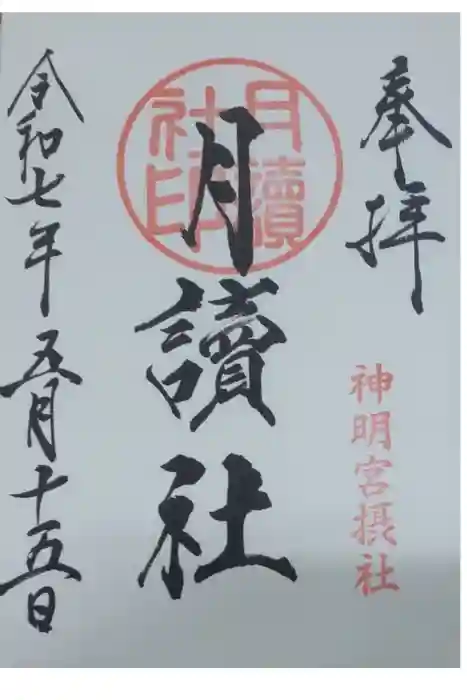 奉拝
神明宮摂社
月讀社
月瀆
社印
令和七年五月十五日